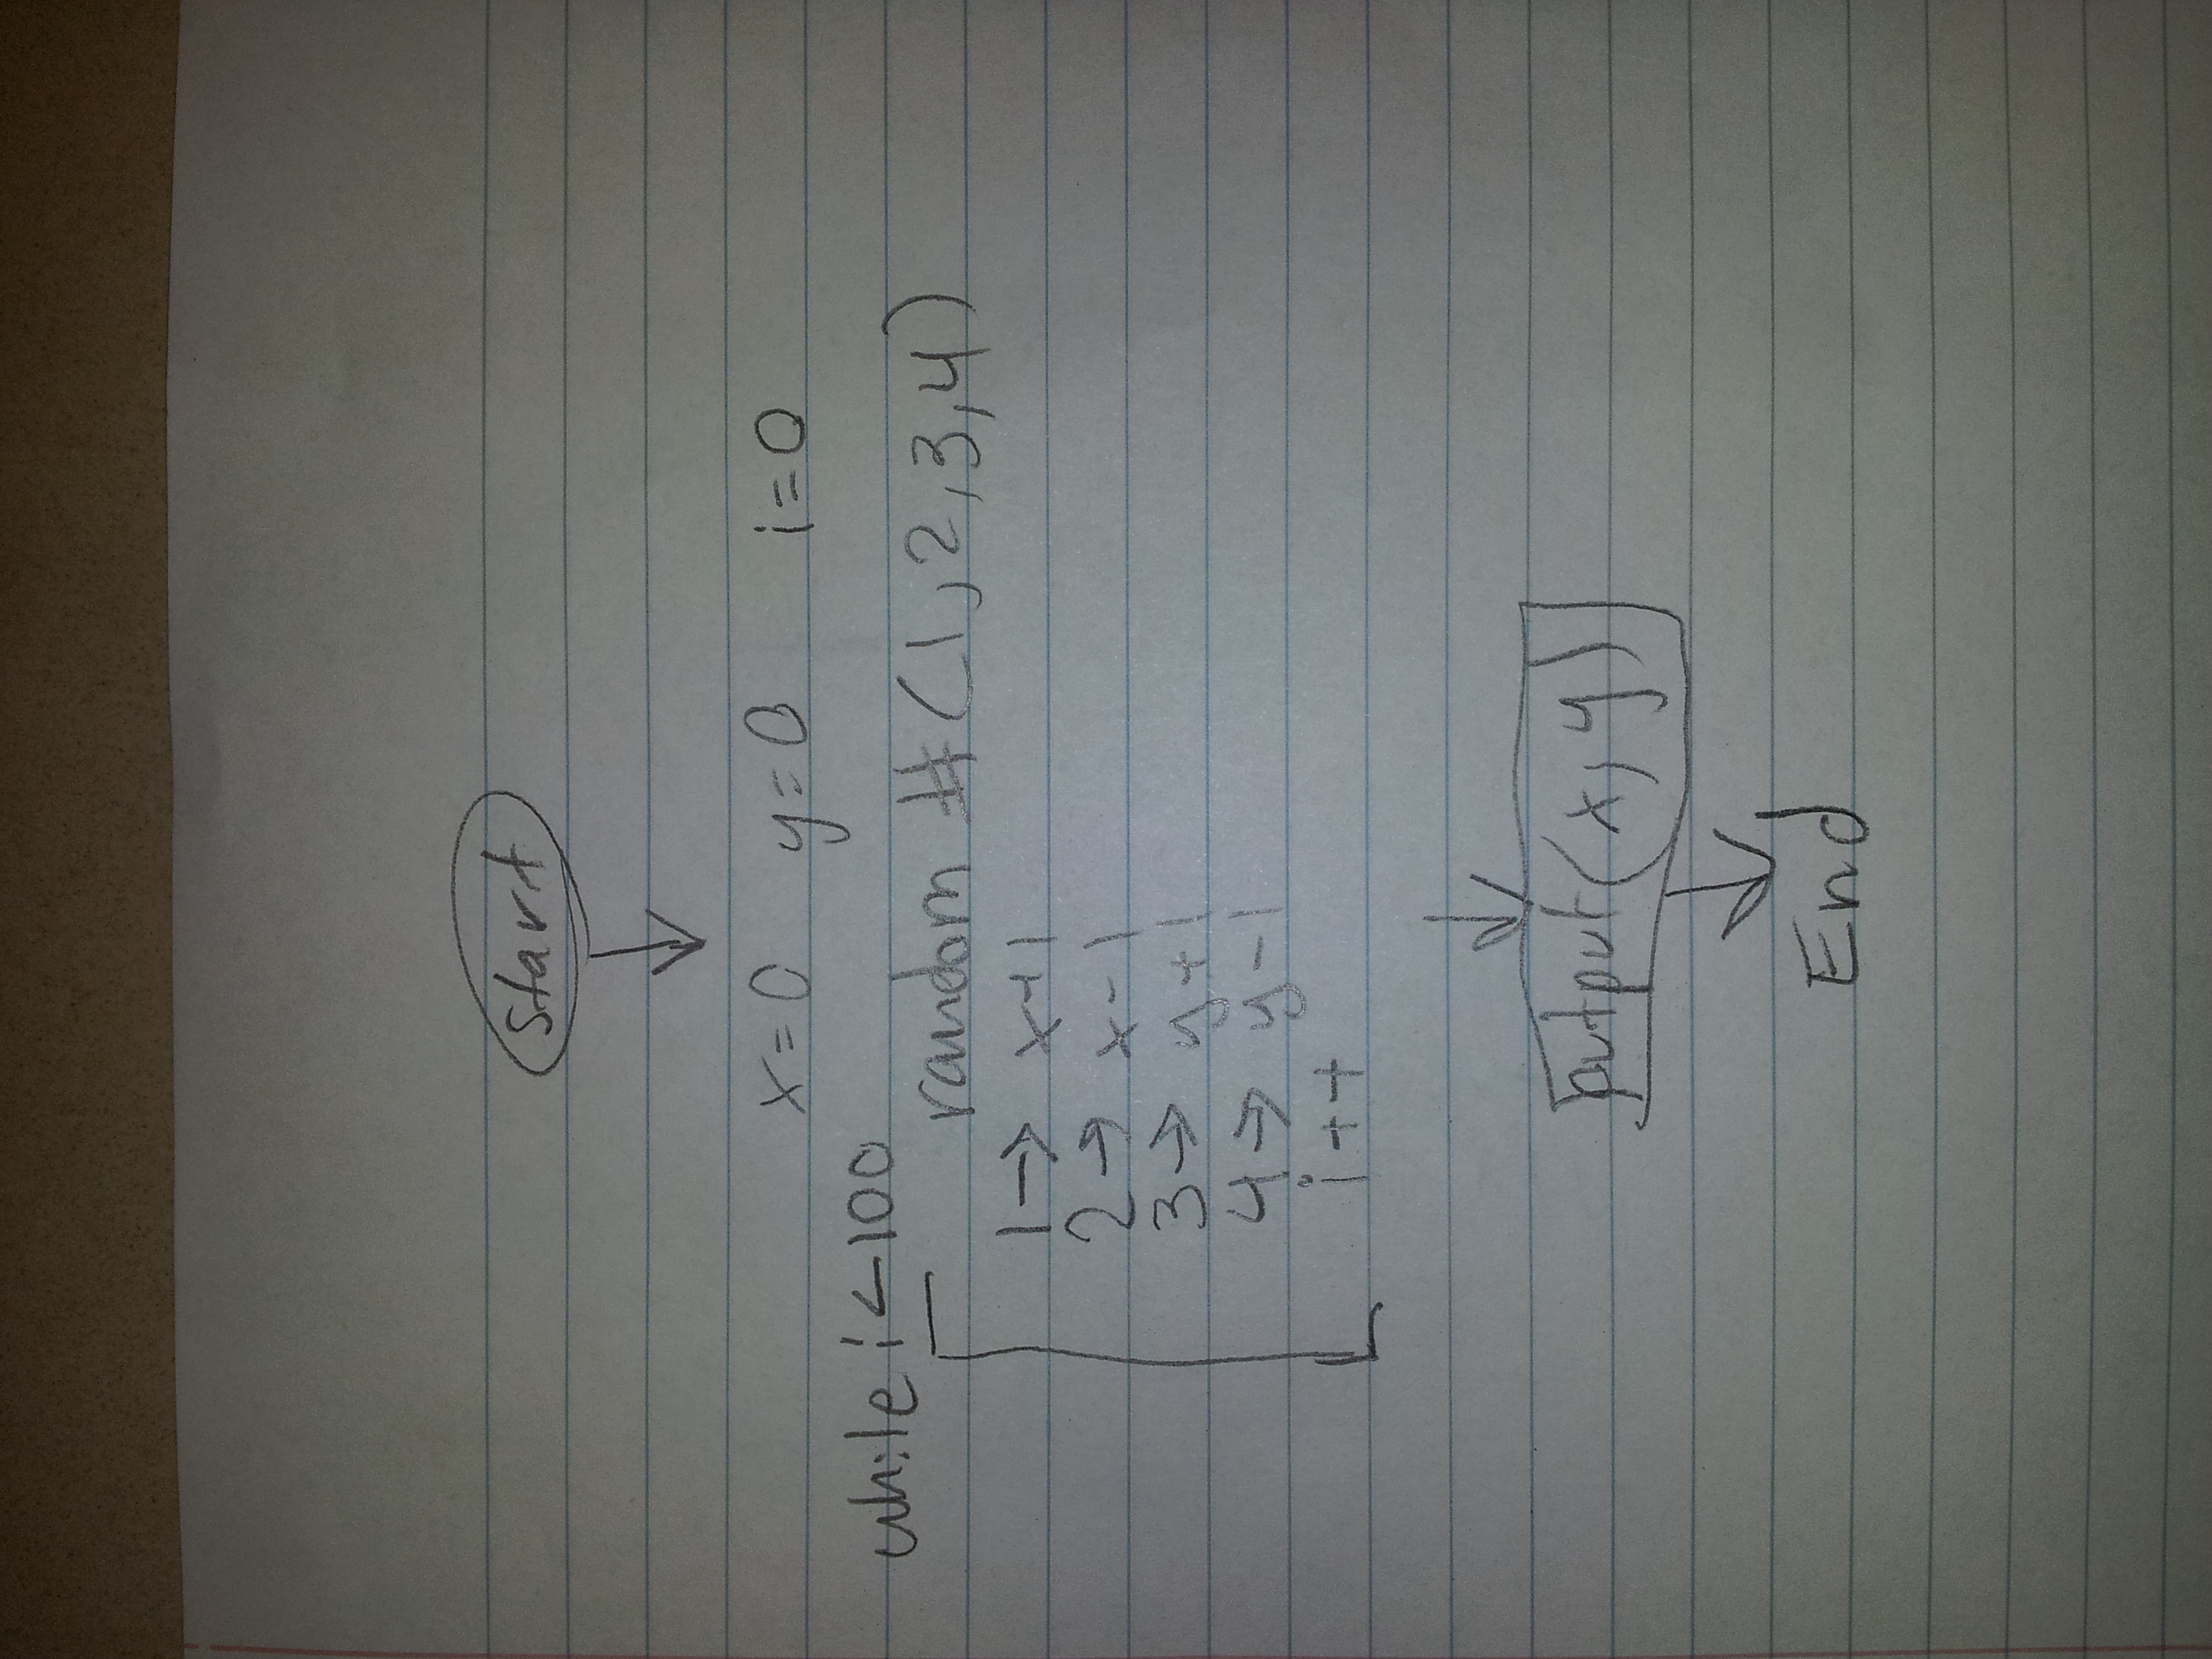 Start
x=0 y=0 i=0
while i<100
random #(1,2,3,4)
1→ x+1
2→ x-1
3→ y+1
4→ y-1
i++
output(x,y)
End